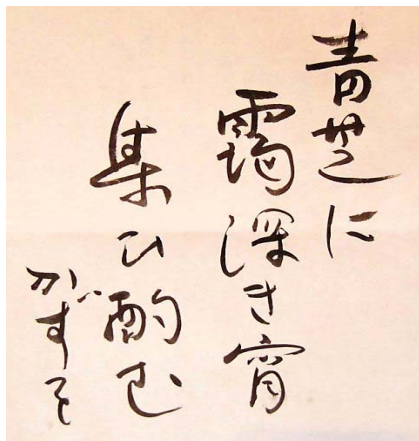 青芝に
靄深き宵
集ひ酌む
かずを